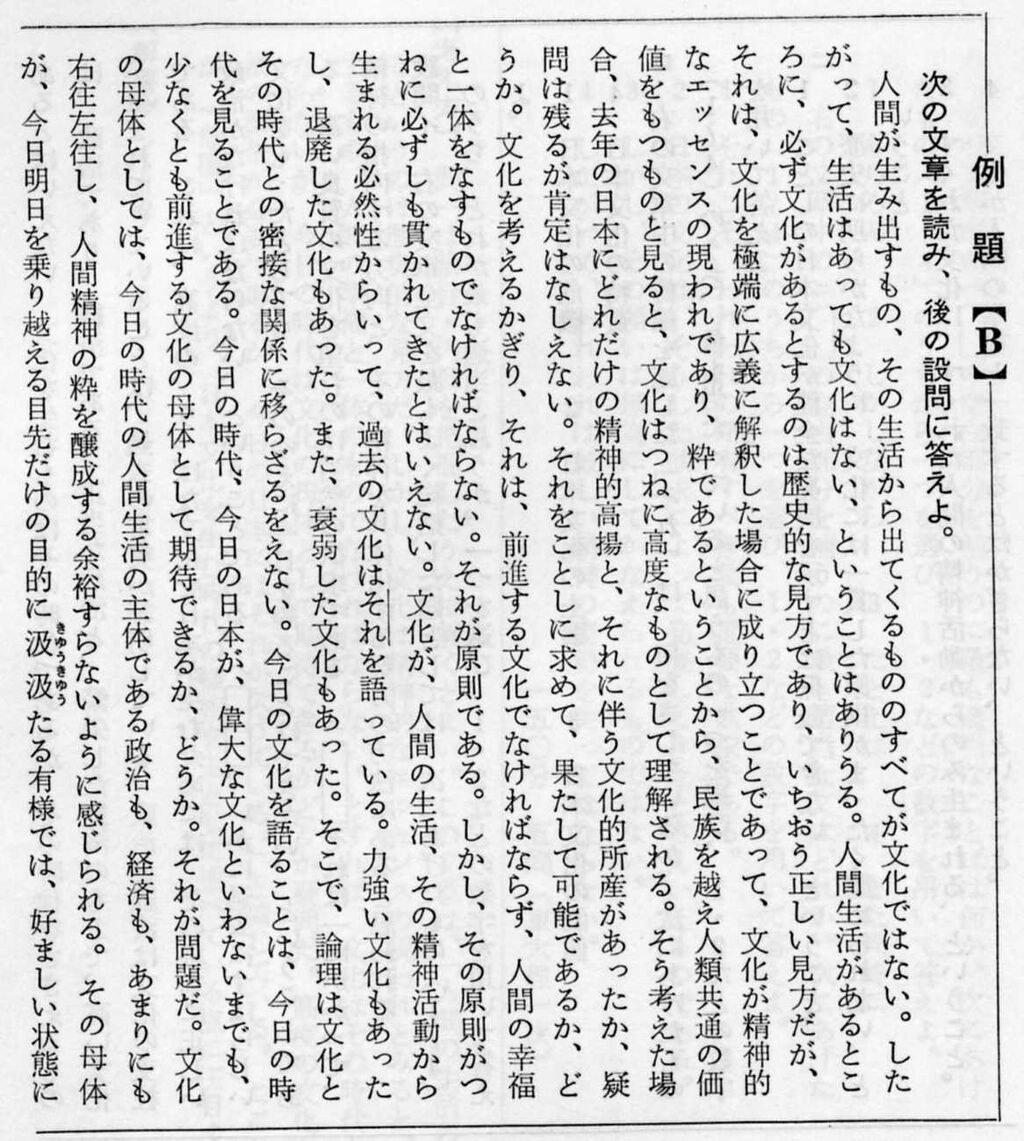 例題【B】
次の文章を読み、後の設問に答えよ。
人間が生み出すもの、その生活から出てくるもののすべてが文化ではない。した
がって、生活はあっても文化はない、ということはありうる。人間生活があるとこ
ろに、必ず文化があるとするのは歴史的な見方であり、いちおう正しい見方だが、
それは、文化を極端に広義に解釈した場合に成り立つことであって、文化が精神的
なエッセンスの現われであり、粋であるということから、民族を越え人類共通の価
値をもつものと見ると、文化はつねに高度なものとして理解される。そう考えた場
合、去年の日本にどれだけの精神的高揚と、それに伴う文化的所産があったか、疑
問は残るが肯定はなしえない。それをことしに求めて、果たして可能であるか、ど
うか。文化を考えるかぎり、それは、前進する文化でなければならず、人間の幸福
と一体をなすものでなければならない。それが原則である。しかし、その原則がつ
ねに必ずしも貫かれてきたとはいえない。文化が、人間の生活、その精神活動から
生まれる必然性からいって、過去の文化はそれを語っている。力強い文化もあった
し、退廃した文化もあった。また、衰弱した文化もあった。そこで、論理は文化と
その時代との密接な関係に移らざるをえない。今日の文化を語ることは、今日の時
代を見ることである。今日の時代、今日の日本が、偉大な文化といわないまでも、
少なくとも前進する文化の母体として期待できるか、どうか。それが問題だ。文化
の母体としては、今日の時代の人間生活の主体である政治も、経済も、あまりにも
右往左往し、人間精神の粋を醸成する余裕すらないように感じられる。その母体
が、今日明日を乗り越える目先だけの目的に汲汲たる有様では、好ましい状態に
きゅうきゅう